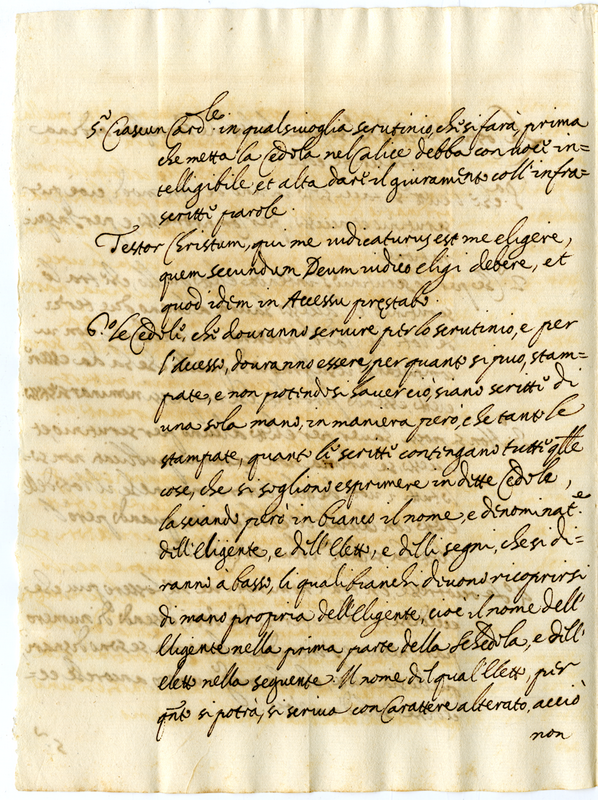 5.º Ciascun Card.le in qualsivoglia scrutinio, che si farà, prima
che metta la Cedola nel Calice debba con voce in=
telligibile, et alta dare il giuramento coll'infra=
scritte parole.
Testor Christum, qui me iudicaturus est me eligere,
quem secundum Deum iudico eligi debere, et
quod idem in Accessu præstabo.
6.º Le Cedole, che dovranno servire per lo scrutinio, e per
l'accesso, dovranno essere, per quanto si può, stam=
pate, e non potendosi haver ciò, siano scritte di
una sola mano, in maniera però, che tanto le
stampate, quanto le scritte contengano tutte q.lle
cose, che si sogliono esprimere in dette Cedole,
lasciando però in bianco il nome, e denominat.e
dell'Eligente, e dell'Eletto, e delli segni, che si di=
ranno à basso, li quali bianchi devono ricoprirsi
di mano propria dell'Eligente, cioe il nome dell'
Eligente nella prima parte della Schedola, e dell'
eletto nella seguente. Il nome del qual'Eletto, per
q.nto si potrà, si scriva con Carattere alterato, acciò
non